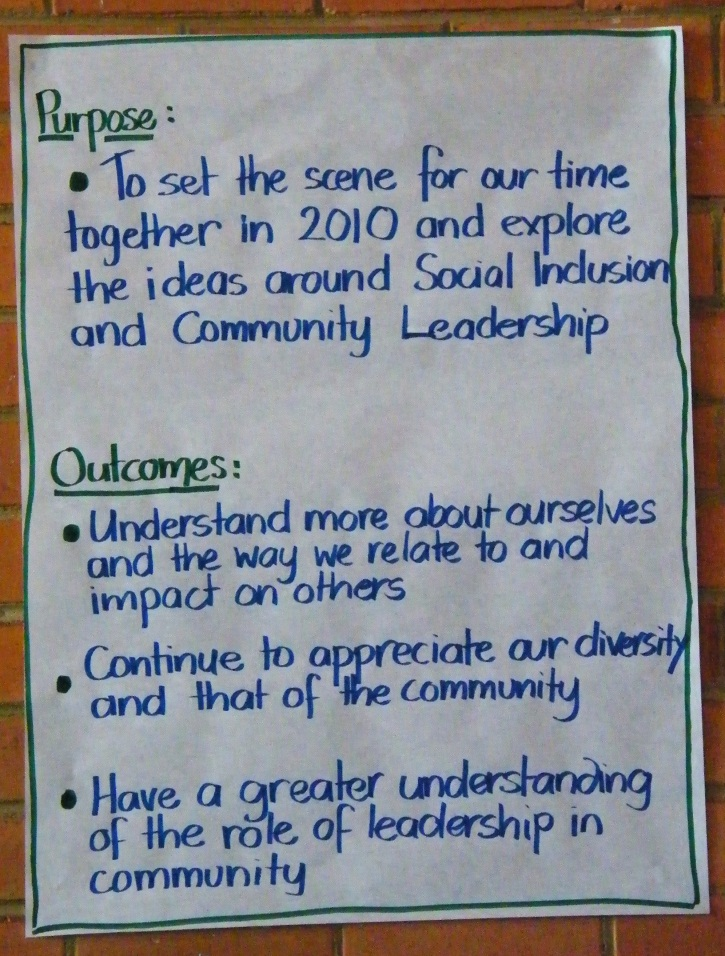 Purpose:
• To set the scene for our time
together in 2010 and explore
the ideas around Social Inclusion
and Community Leadership
Outcomes:
• Understand more about ourselves
and the way we relate to and
impact on others
• Continue to appreciate our diversity
and that of the community
• Have a greater understanding
of the role of leadership in
community